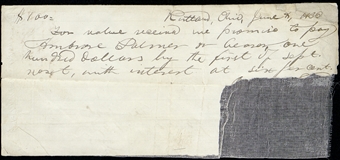 $100.00 Kirtland, Ohio, June
For value received we promise to pay
Ambrose Palmer or bearer one
hundred dollars by the first of Sept.
next, with interest at six per cent.